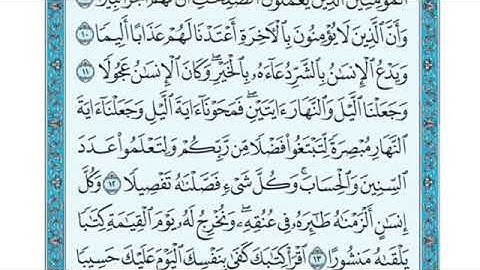 ٱلْمُؤْمِنِينَ ٱلَّذِينَ يَعْمَلُونَ ٱلصَّٰلِحَٰتِ أَنَّ لَهُمْ أَجْرًا كَبِيرًا ٩
وَأَنَّ ٱلَّذِينَ لَا يُؤْمِنُونَ بِٱلْأٓخِرَةِ أَعْتَدْنَا لَهُمْ عَذَابًا أَلِيمًا ١٠
وَيَدْعُ ٱلْإِنسَٰنُ بِٱلشَّرِّ دُعَآءَهُۥ بِٱلْخَيْرِ ۖ وَكَانَ ٱلْإِنسَٰنُ عَجُولًا ١١
وَجَعَلْنَا ٱلَّيْلَ وَٱلنَّهَارَ ءَايَتَيْنِ ۖ فَمَحَوْنَآ ءَايَةَ ٱلَّيْلِ وَجَعَلْنَآ ءَايَةَ
ٱلنَّهَارِ مُبْصِرَةً لِّتَبْتَغُوا۟ فَضْلًا مِّن رَّبِّكُمْ وَلِتَعْلَمُوا۟ عَدَدَ
ٱلسِّنِينَ وَٱلْحِسَابَ ۚ وَكُلَّ شَىْءٍ فَصَّلْنَٰهُ تَفْصِيلًا ١٢ وَكُلَّ
إِنسَٰنٍ أَلْزَمْنَٰهُ طَٰٓئِرَهُۥ فِى عُنُقِهِۦ ۖ وَنُخْرِجُ لَهُۥ يَوْمَ ٱلْقِيَٰمَةِ كِتَٰبًا
يَلْقَىٰهُ مَنشُورًا ١٣ ٱقْرَأْ كِتَٰبَكَ كَفَىٰ بِنَفْسِكَ ٱلْيَوْمَ عَلَيْكَ حَسِيبًا